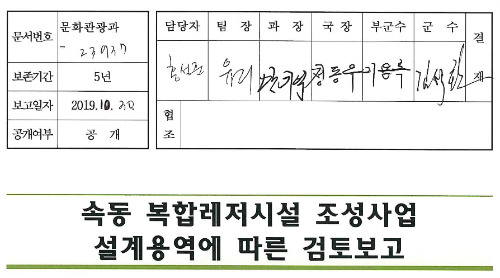 문서번호 문화관광과 - 23937
보존기간 5년
보고일자 2019. 10.
공개여부 공 개
담당자 팀 장 과 장 국 장 부군수 군 수 결 재
협 조
속동 복합레저시설 조성사업
설계용역에 따른 검토보고